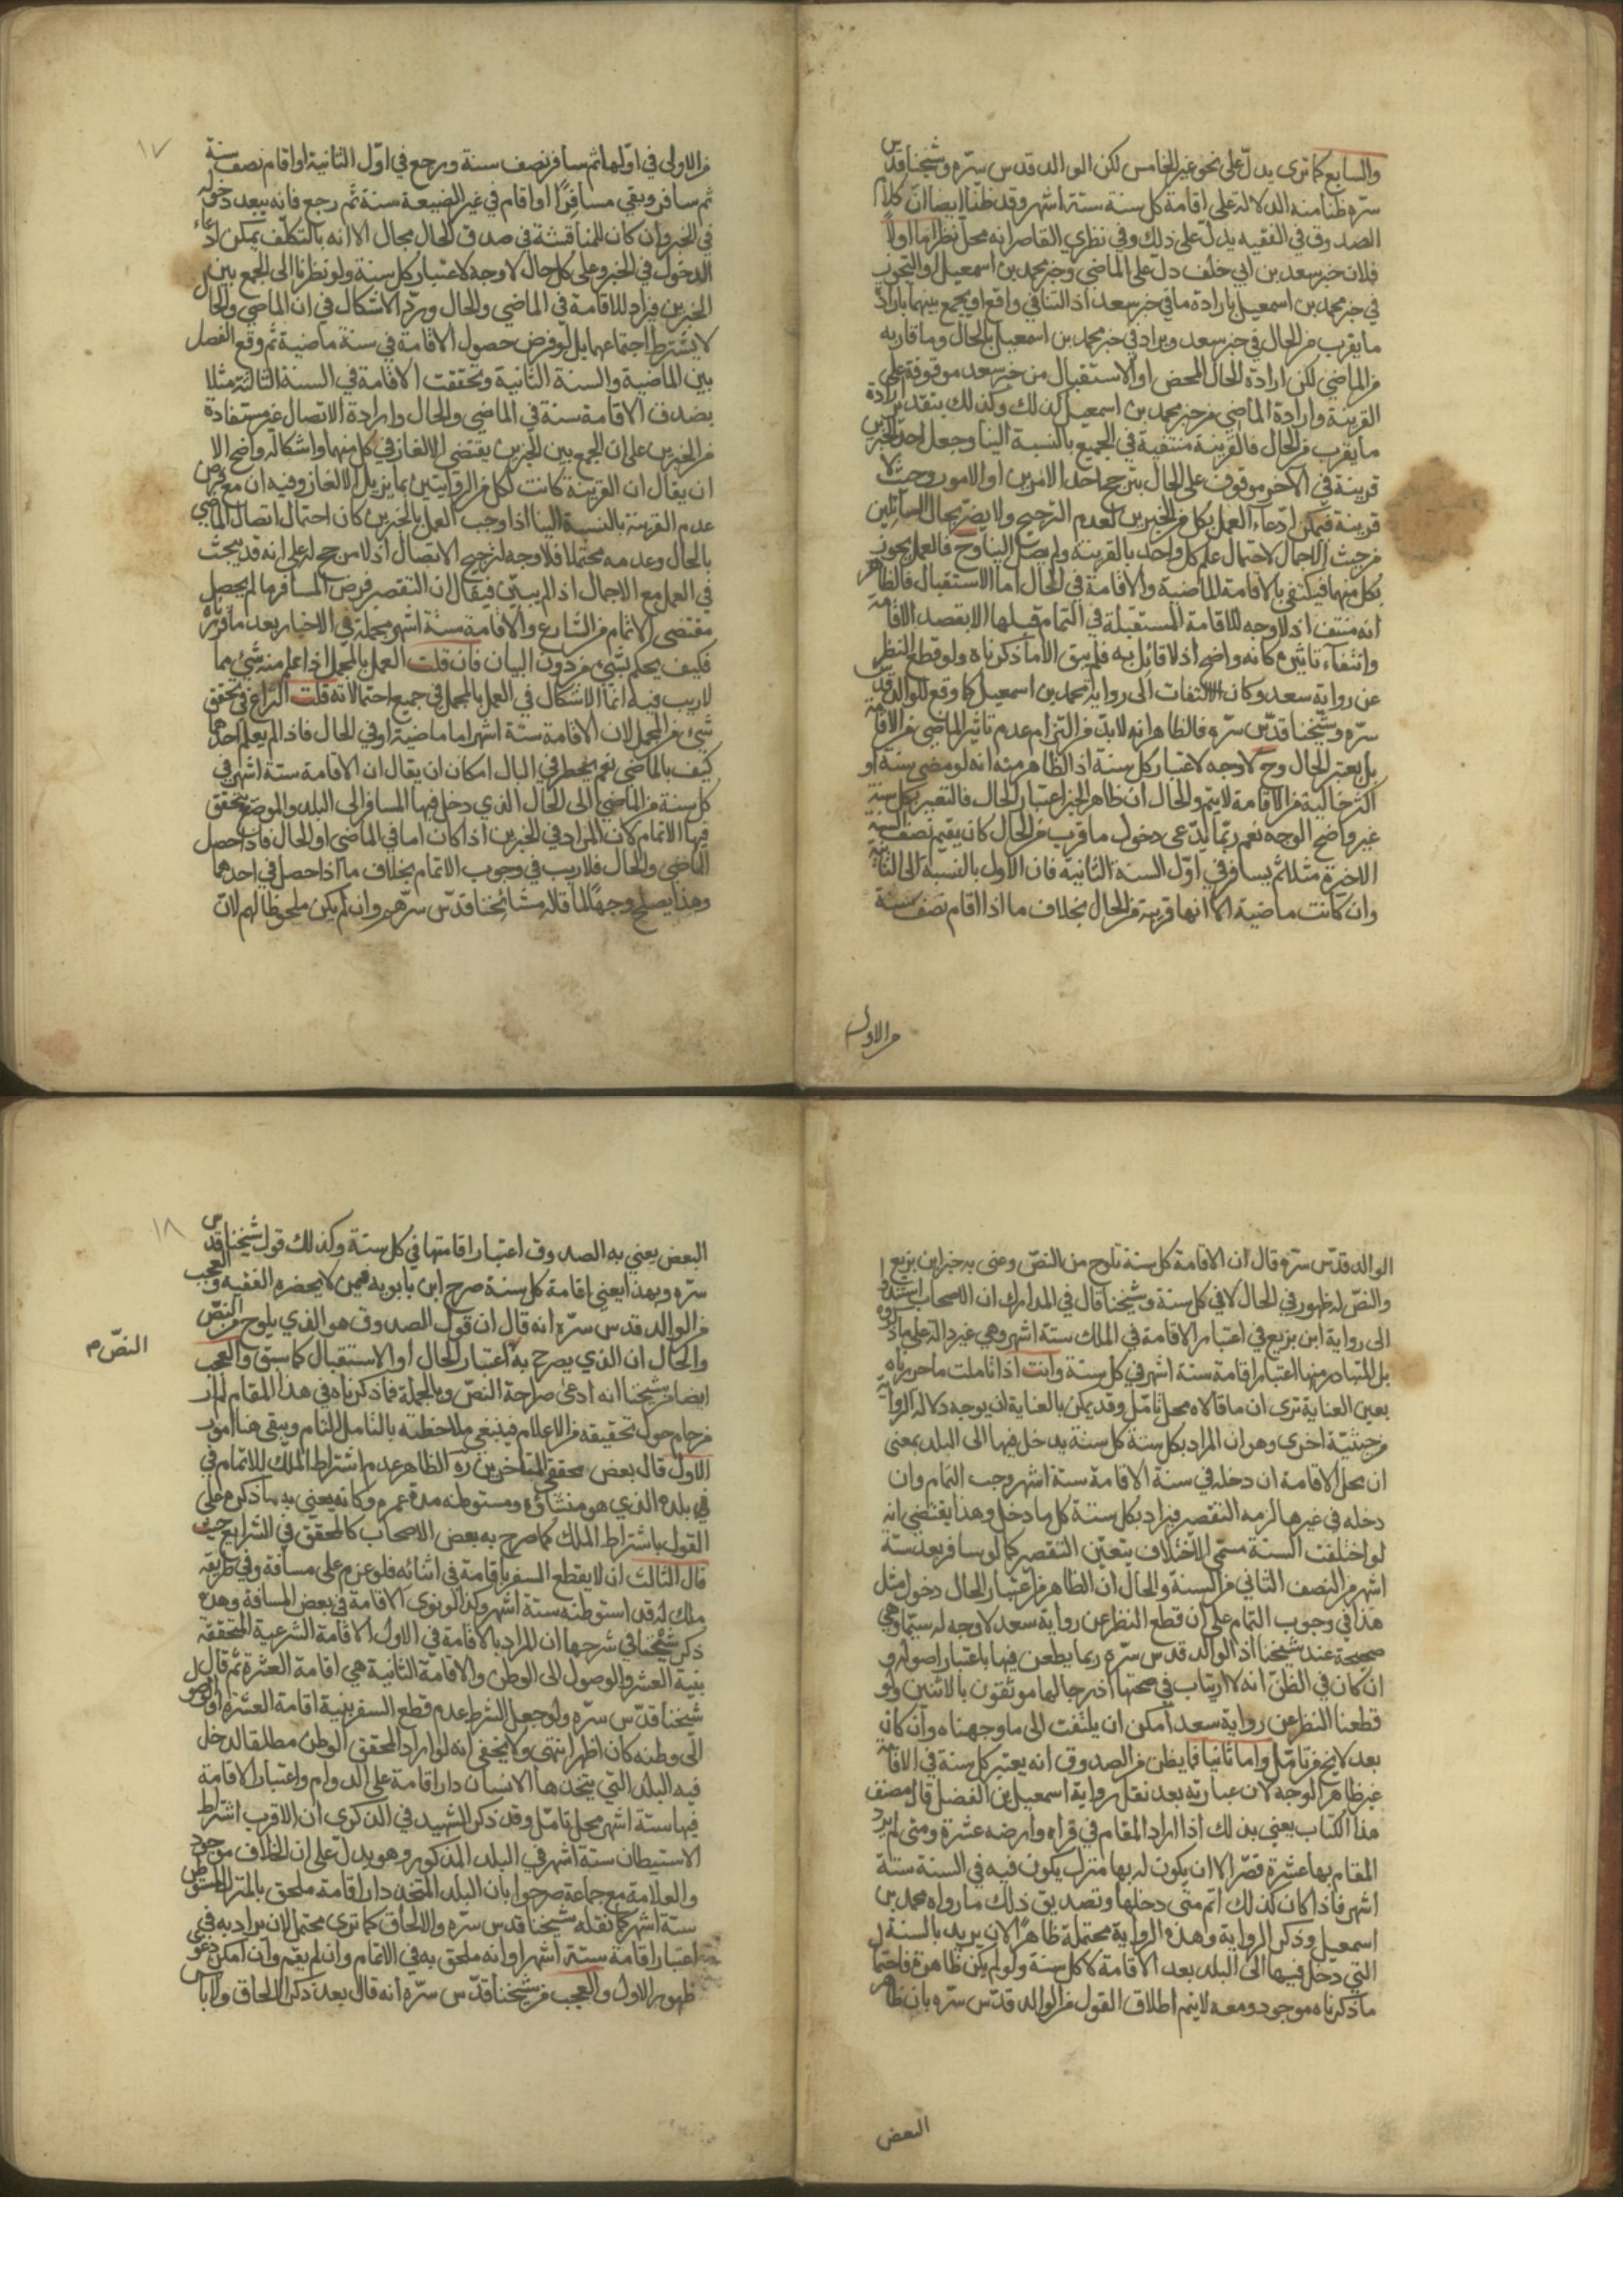 والسابع كما ترى يدلّ على نحو غير الخامس لكن الوالد قدس سرّه وشيخنا قدّس
سرّه ظنا منه الدلالة على اقامة كل سنة ستة اشهر وقد ظنّا ايضا انّ كلام
الصدوق في الفقيه يدلّ على ذلك وفي نظري القاصر انه محلّ نظر اما اولاً
فلان خبر سعد بن ابي خلف دلّ على الماضي وخبر محمد بن اسمعيل او التجوز
في خبر محمد بن اسمعيل بارادة ما في خبر سعد اذ التنافي واقع او يجمع بينهما بارادة
ما يقرب من الحال في خبر سعد ويراد في خبر محمد بن اسمعيل بالحال وما قاربه
من الماضي لكن ارادة الحال المحض او الاستقبال من خبر سعد موقوفة على
القرينة وارادة الماضي من خبر محمد بن اسمعيل كذلك وكذلك بتقدير ارادة
ما يقرب من الحال فالقرينة منتفية في الجميع بالنسبة الينا وجعل احد الخبرين
قرينة في الآخر موقوف على الحال بترجيح احد الامرين او الامور وحيث لا
قرينة فيمكن ادّعاء العمل بكل من الخبرين لعدم الترجيح ولا يضرّ بحال السائلين
من حيث الاجمال لاحتمال علم كل واحد بالقرينة ولم يصل الينا وح فالعمل يجوز
بكل منهما فيكتفى بالاقامة الماضية والاقامة في الحال اما الاستقبال فالظاهر
انه منتف اذ لا وجه للاقامة المستقبلة في التمام قبلها الا بقصد الاقامة
وانتفاء تاثيره كانه واضح اذ لا قائل به فلم يبق الا ما ذكرناه ولو قطع النظر
عن رواية سعد وكان الالتفات الى رواية محمد بن اسمعيل كما وقع للوالد قدّس
سرّه وشيخنا قدّس سرّه فالظاهر انه لا بدّ من التزام عدم تاثير الماضي من الاقامة
بل يعتبر الحال وح لا وجه لاعتبار كل سنة اذ الظاهر منه انه لو مضى سنة او
اكثر خالية من الاقامة لا يتم والحال ان ظاهر الخبر اعتبار الحال فالتعبير بكل سنة
غير واضح الوجه نعم ربّما يدّعى دخول ما قرب من الحال كان يقيم نصف السنة
الاخيرة مثلا ثم يسافر في اوّل السنة الثانية فان الاولى بالنسبة الى الثانية
وان كانت ماضية الا انها قريبة من الحال بخلاف ما اذا اقام نصف سنة
من الاولى
١٧
من الاولى في اوّلها ثم سافر نصف سنة ورجع في اوّل الثانية او اقام نصف سنة
ثم سافر وبقي مسافرًا او اقام في غير الضيعة سنة ثم رجع فانه يبعد دخوله
في الخبر وان كان للمناقشة في صدق الحال مجال الا انه بالتكلّف يمكن ادعاء
الدخول في الخبر وعلى كل حال لا وجه لاعتبار كل سنة ولو نظرنا الى الجمع بين
الخبرين فيراد للاقامة في الماضي والحال ويردّ الاشكال في ان الماضي والحال
لا يشترط اجتماعهما بل لو فرض حصول الاقامة في سنة ماضية ثم وقع الفصل
بين الماضية والسنة الثانية وتحققت الاقامة في السنة الثالثة مثلا
يصدق الاقامة سنة في الماضي والحال وارادة الاتصال غير مستفادة
من الخبرين على ان الجمع بين الخبرين يقتضي الالغاز في كل منهما واشكاله واضح الا
ان يقال ان القرينة كانت لكل من الروايتين بما يزيل الالغاز وفيه ان مع فرض
عدم القرينة بالنسبة الينا اذا وجب العمل بالخبرين كان احتمال اتصال الماضي
بالحال وعدمه محتملا فلا وجه لترجيح الاتصال اذ لا مرجح له على انه قد يبحث
في العمل مع الاجمال اذ لم يبيّن فيقال ان التقصير فرض المسافر ما لم يحصل
مقتضى الاتمام من الشارع والاقامة ستة اشهر مجملة في الاخبار بعد ما قررناه
فكيف يحكم بشيء من دون البيان فان قلت العمل بالمجمل اذا علم منه شيء مما
لا ريب فيه انما الاشكال في العمل بالمجمل في جميع احتمالاته قلت النزاع في تحقق
شيء من المجمل لان الاقامة ستة اشهر اما ماضية او في الحال فاذا لم يعلم احدهما
كيف بالماضي نعم يخطر في البال امكان ان يقال ان الاقامة ستة اشهر في
كل سنة من الماضي الى الحال الذي دخل فيها المسافر الى البلد والموضع يتحقق
فيها الاتمام كان المراد في الخبرين اذا كان اما في الماضي او الحال فاذا حصل
الماضي والحال فلا ريب في وجوب الاتمام بخلاف ما اذا حصل في احدهما
وهذا يصلح وجهًا لما قاله مشائخنا قدّس سرّهم وان لم يكن ملحوظا لهم لانّ
الوالد قدّس سرّه قال ان الاقامة كل سنة تلوح من النصّ وعنى به خبر ابن بزيع
والنصّ له ظهور في الحال لا في كل سنة وشيخنا قال في المدارك ان الاصحاب استندوا
الى رواية ابن بزيع في اعتبار الاقامة في الملك ستة اشهر وهي غير دالة على ما ذكروه
بل المتبادر منها اعتبار اقامة ستة اشهر في كل سنة وانت اذا تاملت ما حررناه
بعين العناية ترى ان ما قالاه محل تامّل وقد يمكن بالعناية ان يوجه دلالة الرواية
من حيثيّة اخرى وهو ان المراد بكل سنة كل سنة يدخل فيها الى البلد بمعنى
ان محل الاقامة ان دخله في سنة الاقامة ستة اشهر وجب التمام وان
دخله في غيرها لزمه التقصير فيراد بكل سنة كل ما دخل وهذا يقتضي انه
لو اختلفت السنة مسمّى الاختلاف يتعيّن التقصير كما لو سافر بعد ستة
اشهر من النصف الثاني من السنة والحال ان الظاهر من اعتبار الحال دخول مثل
هذا في وجوب التمام على ان قطع النظر عن رواية سعد لا وجه له سيّما وهي
صحيحة عند شيخنا اذ الوالد قدس سرّه ربما يطعن فيها باعتبار اصوله و
ان كان في الظنّ انه لا ارتياب في صحتها اذ رجالها موثقون بالاثنين ولو
قطعنا النظر عن رواية سعد امكن ان يلتفت الى ما وجهناه وان كان
بعد لا يخ من تامّل واما ثانيا فما يظن من الصدوق انه يعتبر كل سنة في الاقامة
غير ظاهر الوجه لان عبارته بعد نقل رواية اسمعيل بن الفضل قال مصنف
هذا الكتاب يعني بذلك اذا اراد المقام في قراه وارضه عشرة ومتى لم يرد
المقام بها عشرة قصّر الا ان يكون له بها منزل يكون فيه في السنة ستة
اشهر فاذا كان كذلك اتم متى دخلها وتصديق ذلك ما رواه محمد بن
اسمعيل وذكر الرواية وهذه الرواية محتملة ظاهرًا لان يريد بالسنة
التي دخل فيها الى البلد بعد الاقامة لا كل سنة ولو لم يكن ظاهرة فاحتمال
ما ذكرناه موجود ومعه لا يتم اطلاق القول من الوالد قدّس سرّه بان ظاهر
البعض
١٨
البعض يعني به الصدوق اعتبار اقامتها في كل سنة وكذلك قول شيخنا قدس
سرّه وبهذا يعني اقامة كل سنة صرح ابن بابويه فيمن لا يحضره الفقيه والعجب
من الوالد قدس سرّه انه قال ان قول الصدوق هو الذي يلوح من النصّ
النصّ م
والحال ان الذي يصرح به اعتبار الحال أو الاستقبال كما سبق والعجب
ايضا من شيخنا انه ادعى صراحة النصّ وبالجملة فما ذكرناه في هذا المقام لم ار
من حام حول تحقيقه من الاعلام فينبغي ملاحظته بالتامل التام ويبقى هنا امور
الاول قال بعض محققي المتاخرين ره الظاهر عدم اشتراط الملك للاتمام في
في بلده الذي هو منشاؤه ومستوطنه مدة عمره وكانه يعني به ما ذكره على
القول باشتراط الملك كما صرح به بعض الاصحاب كالمحقق في الشرايع حيث
قال الثالث ان لا يقطع السفر باقامة في اثنائه فلو عزم على مسافة وفي طريقه
ملك له قد استوطنه ستة اشهر وكذا لو نوى الاقامة في بعض المسافة وهذه
ذكر شيخنا في شرحها ان المراد بالاقامة في الاول الاقامة الشرعية المتحققة
بنية العشر والوصول الى الوطن والاقامة الثانية هي اقامة العشرة ثم قال
شيخنا قدّس سرّه ولو جعل الشرط عدم قطع السفر بنية اقامة العشرة او الوصول
الى وطنه كان اظهر انتهى ولا يخفى انه لو اراد المحقق الوطن مطلقا لدخل
فيه البلد التي يتخذها الانسان دار اقامة على الدوام واعتبار الاقامة
فيها ستة اشهر محل تامّل وقد ذكر الشهيد في الذكرى ان الاقرب اشتراط
الاستيطان ستة اشهر في البلد المذكور وهو يدلّ على ان الخلاف موجود
والعلامة مع جماعة صرحوا بان البلد المتخذ دار اقامة ملحق بالمنزل المستوطن
ستة اشهر كما نقله شيخنا قدس سرّه والالحاق كما ترى محتمل لان يراد به في
اعتبار اقامة ستة اشهر او انه ملحق به في الاتمام وان لم يقم وان امكن دعوى
ظهور الاول والعجب من شيخنا قدّس سرّه انه قال بعد ذكر الالحاق ولا باس